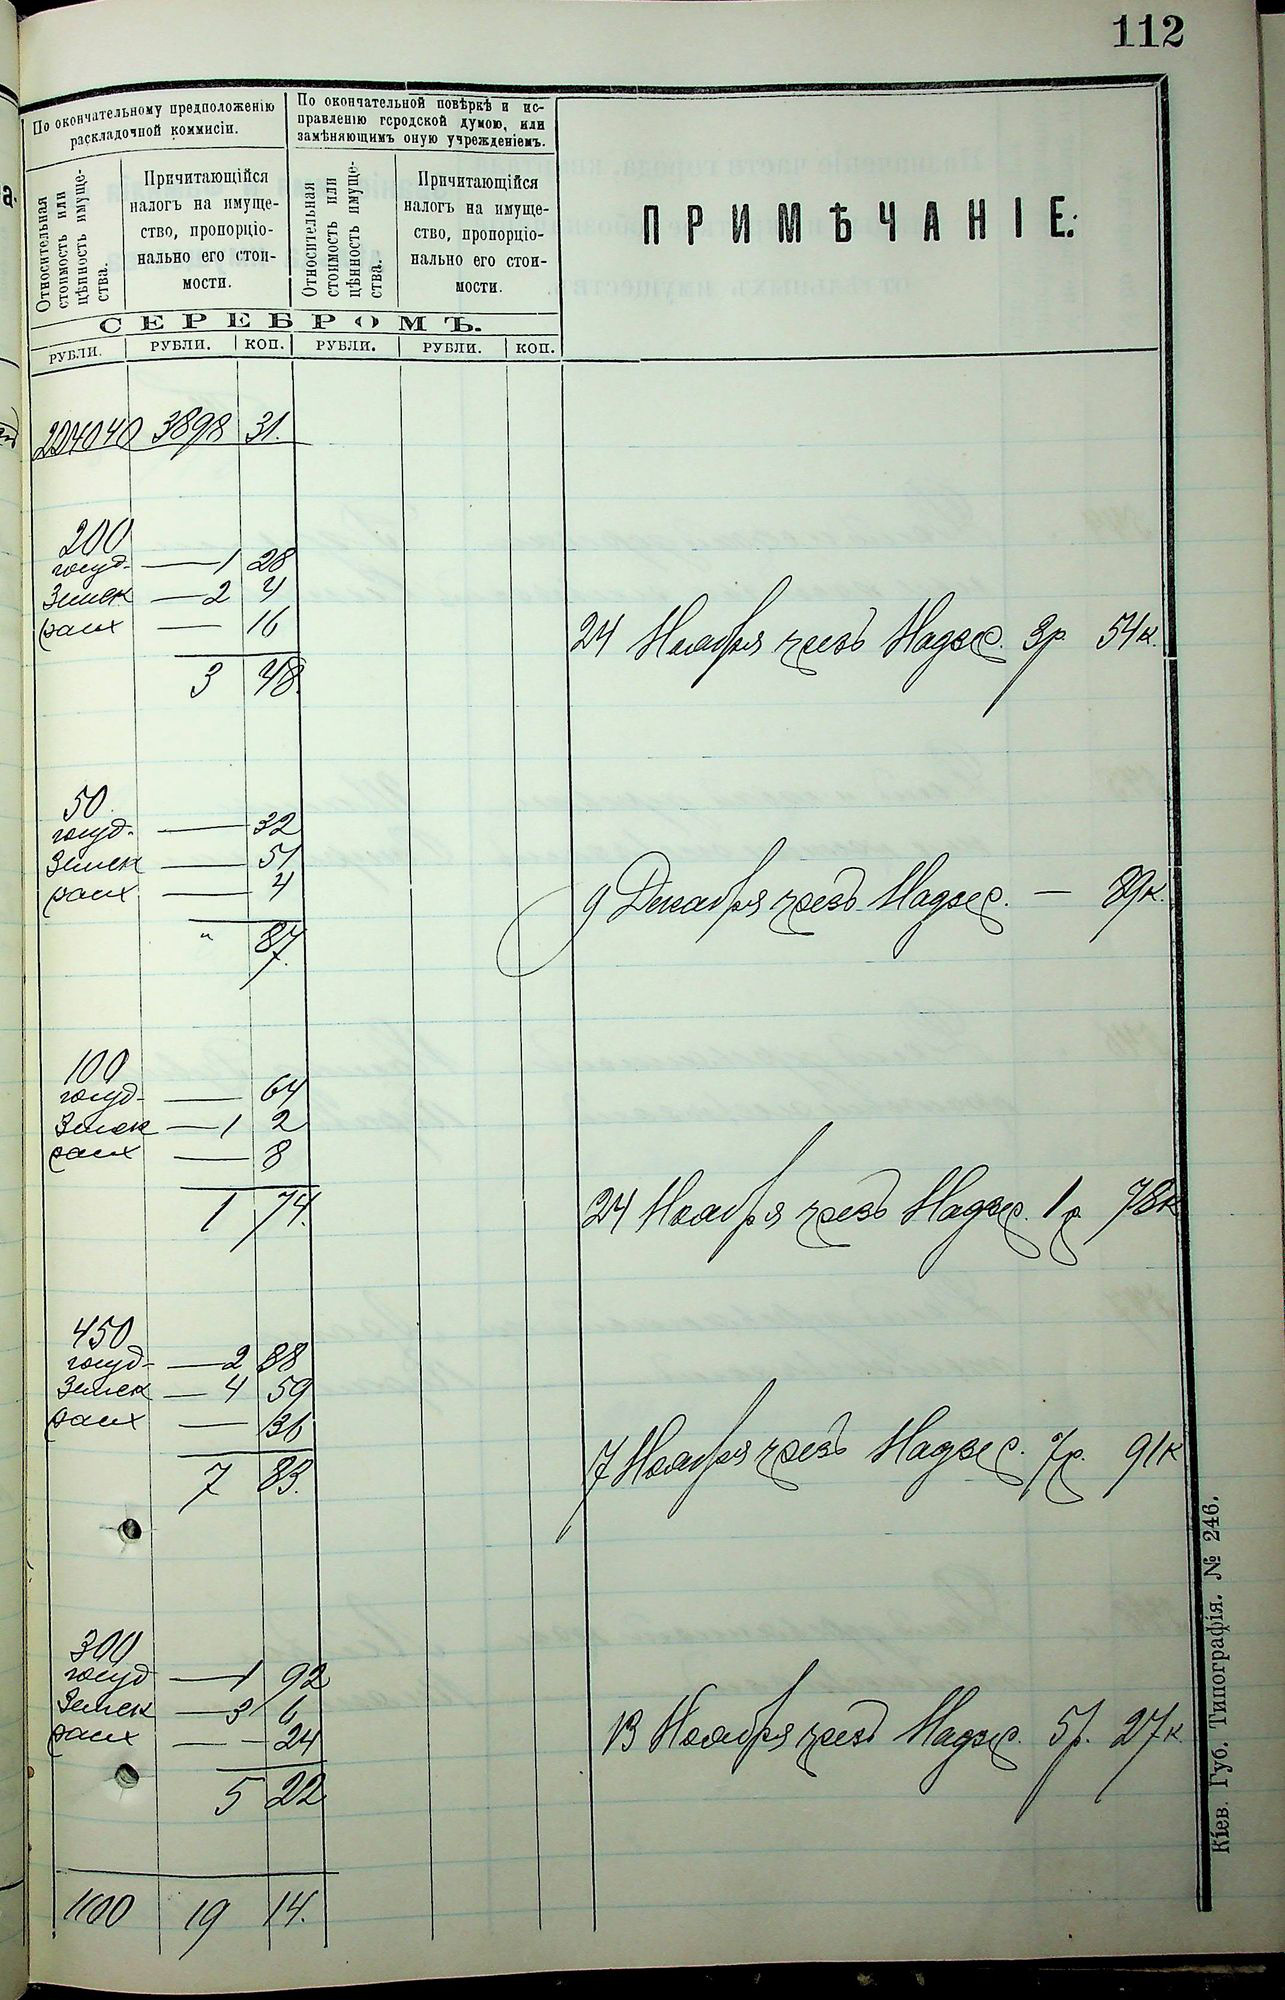 112
По окончательному предположенію
раскладочной коммисіи.
По окончательной повѣркѣ и ис-
правленію городской думою, или
замѣняющимъ оную учрежденіемъ.
Относительная
стоимость или
цѣнность имуще-
ства.
Причитающійся
налогъ на имуще-
ство, пропорціо-
нально его стои-
мости.
Относительная
стоимость или
цѣнность имуще-
ства.
Причитающійся
налогъ на имуще-
ство, пропорціо-
нально его стои-
мости.
ПРИМѢЧАНІЕ.
СЕРЕБРОМЪ.
РУБЛИ. РУБЛИ. КОП. РУБЛИ. РУБЛИ. КОП.
224040 3898 31.
200
госуд. — 1 28
Земск — 2 4
— 16
24 Ноября чрезъ Надзс. 3р 54к.
3 48.
50
госуд. — 32
Земск — 51
— 4
9 Декабря чрезъ Надзс. — 89к.
" 87.
100
госуд. — 64
Земск — 1 2
— 8
1 74.
24 Ноября чрезъ Надзс. 1р 78к
450
госуд. — 2 88
Земск — 4 59
— 36
7 Ноября чрезъ Надзс. 7р. 91к
7 83.
300
госуд — 1 92
Земск — 3 6
— 24
13 Ноября чрезъ Надзс. 5р. 27к
5 22
1100 19 14.
Кіев. Губ. Типографія. № 246.